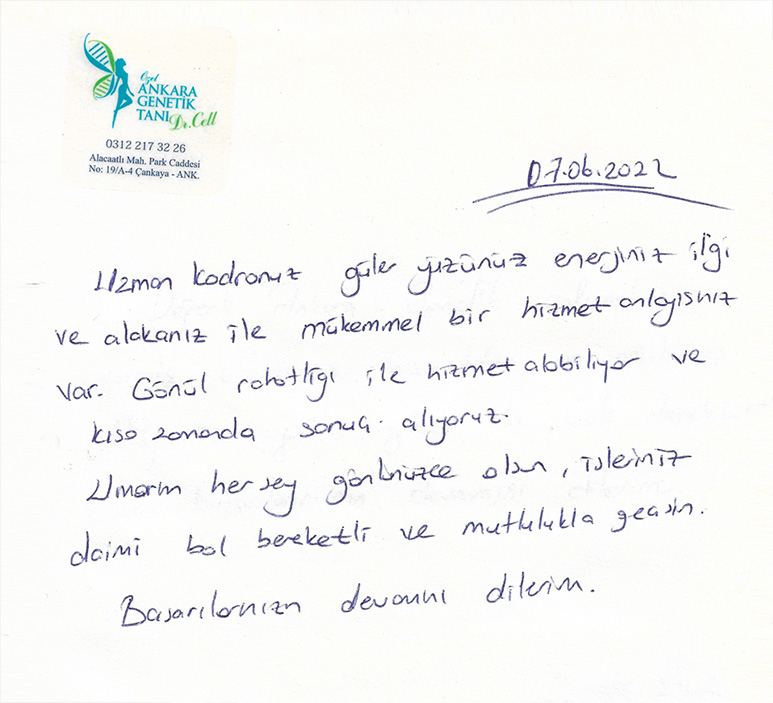 Özel
ANKARA
GENETİK
TANI Dr.Cell
0312 217 32 26
Alacaatlı Mah. Park Caddesi
No: 19/A-4 Çankaya - ANK.
07.06.2022
Uzman kadronuz güler yüzünüz enerjiniz ilgi
ve alakanız ile mükemmel bir hizmet anlayışınız
var. Gönül rahatlığı ile hizmet alabiliyor ve
kısa zamanda sonuç alıyoruz.
Umarım herşey gönlünüzce olsun, işleriniz
daimi bol bereketli ve mutlulukla geçsin.
Başarılarınızın devamını dilerim.